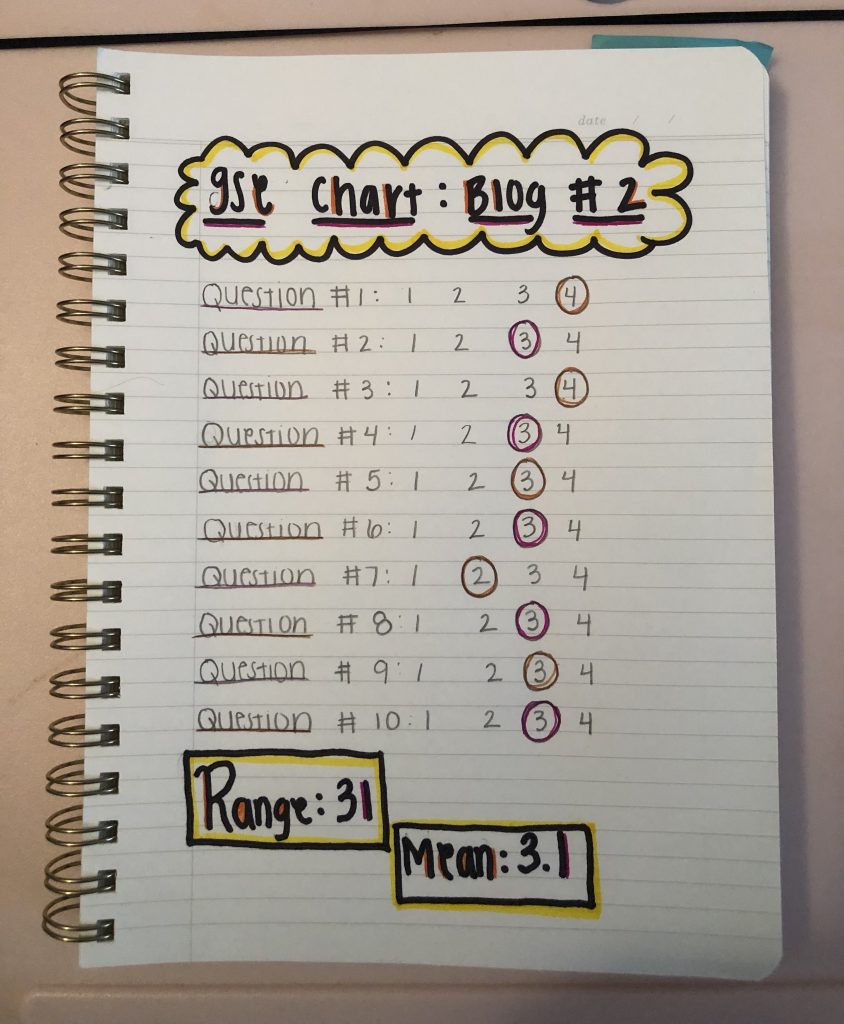 date / /
gse Chart: Blog # 2
Question #1: 1 2 3 4
Question #2: 1 2 3 4
Question #3: 1 2 3 4
Question #4: 1 2 3 4
Question #5: 1 2 3 4
Question #6: 1 2 3 4
Question #7: 1 2 3 4
Question #8: 1 2 3 4
Question #9: 1 2 3 4
Question #10: 1 2 3 4
Range: 31
Mean: 3.1